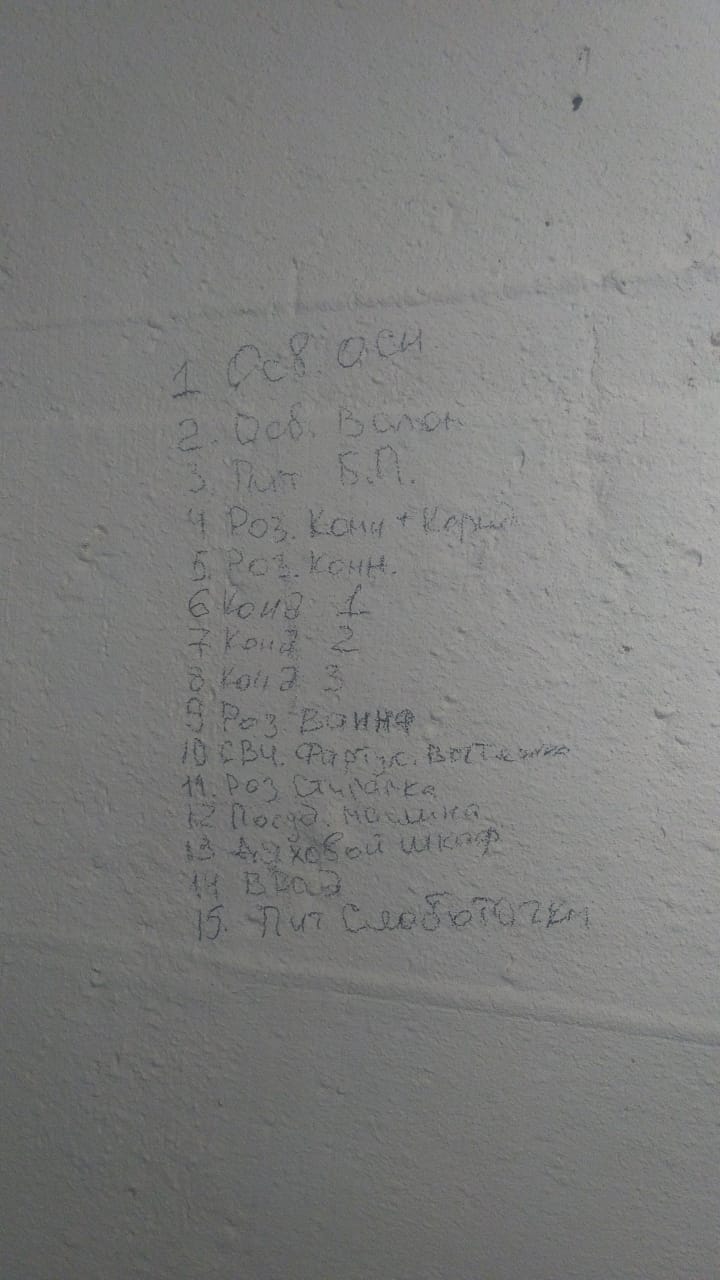 1 Осв. осн
2. Осв. Валон
3. Пит Б.П.
4 Роз. Комн + Корид
5. Роз. Комн.
6 Конд 1
7 Конд 2
8 Конд 3
9 Роз
10 СВЧ. Фартук. Вытяжка
11. Роз Стиралка
12 Посуд. машина
13 Духовой шкаф
14
15. Пит Слаботочки